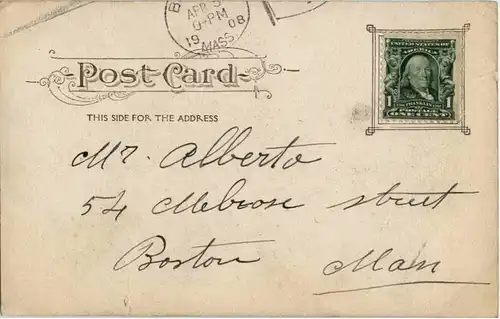 B
APR 5
0-PM
19 08
MASS.
UNITED STATES OF AMERICA
Post Card
1 FRANKLIN 1
POSTAGE
ONE CENT
THIS SIDE FOR THE ADDRESS
Mr. Alberto
54 Melrose street
Boston Mass